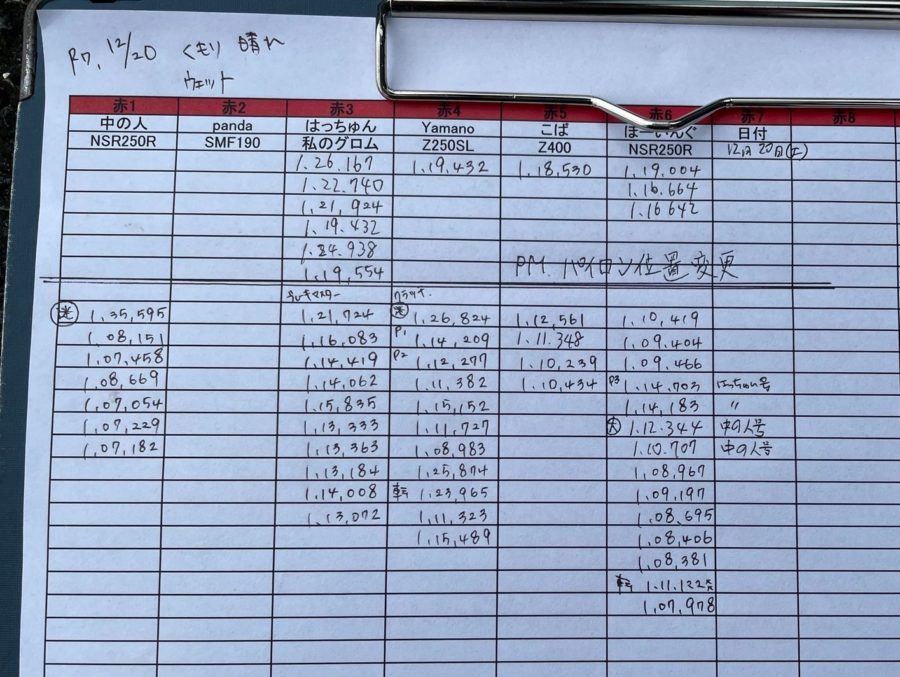 R7, 12/20 くもり 晴れ
ウェット
赤1 赤2 赤3 赤4 赤5 赤6 赤7 赤8
中の人 panda はっちゅん Yamano こば ほーいんぐ 日付
NSR250R SMF190 私のグロム Z250SL Z400 NSR250R 12月20日(土)
1.26.167 1.19,432 1.18,530 1.19.004
1.22.740 1.16.664
1.21,924 1.16.642
1.19.432
1.24.938
1.19,554 PM. パイロン位置変更
クラッチ.
1.35,595 1.21,724 1.26,824 1.12,561 1.10,419
1.08,151 1.16,083 P1 1.14,209 1.11.348 1.09.404
1.07,458 1.14,419 P2 1.12,277 1.10,239 1.09.466
1.08,669 1.14,062 1.11,382 1.10,434 P3 1.14,703 はっちゅん号
1.07,054 1.15,835 1.15,152 1.14,183 〃
1.07,229 1.13,333 1.11,727 大 1.12.344 中の人号
1.07,182 1.13,363 1.08,983 1.10.707 中の人号
1.13,184 1.25,874 1.08,967
1.14,008 転 1.23,965 1.09,197
1.13,072 1.11,323 1.08,695
1.15,489 1.08,406
1.08,381
転 1.11.122
1.07,978